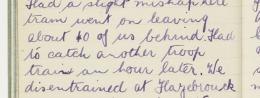 Had a slight mishap here
train went on leaving
about 40 of us behind. Had
to catch another troop
train an hour later. We
disentrained at Hazebrouck